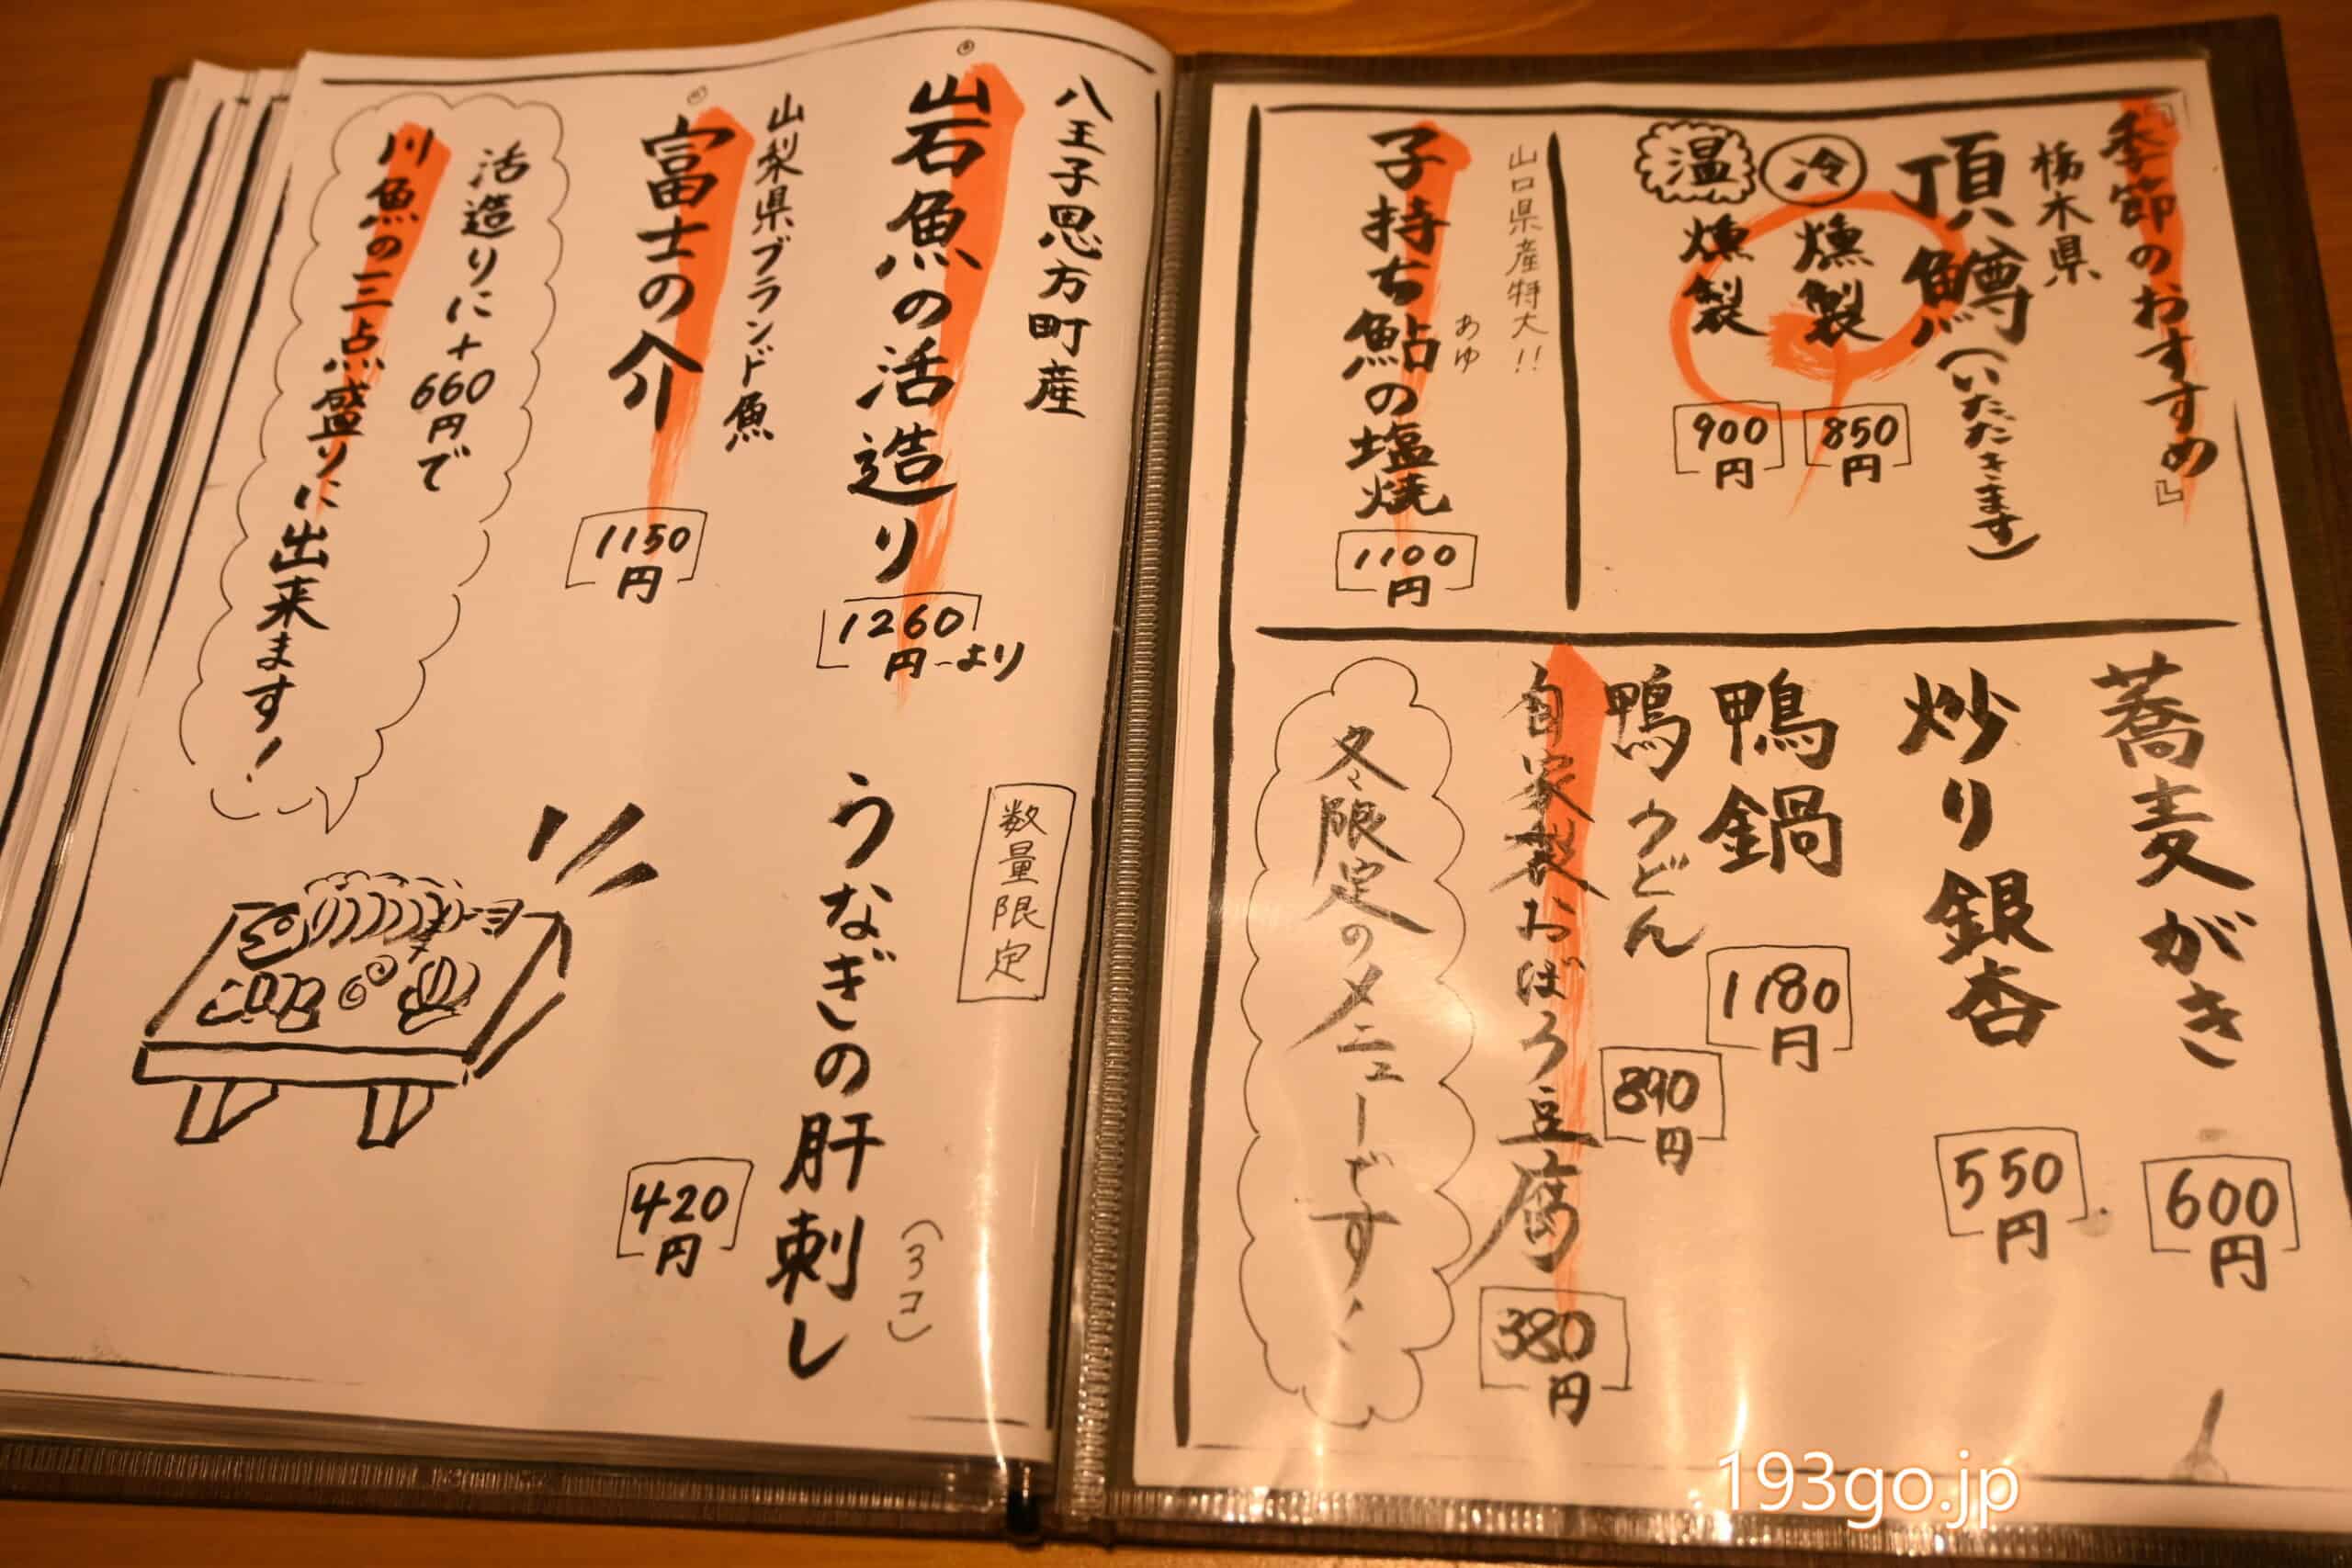 『季節のおすすめ』
栃木県
頂鱒(いただきます)
冷
燻製
850円
温
燻製
900円
山口県産特大!!
子持ち鮎の塩焼
あゆ
1100円
蕎麦がき
600円
炒り銀杏
550円
鴨鍋
1180円
鴨うどん
890円
自家製おぼろ豆腐
380円
冬限定のメニューです!
八王子恩方町産
岩魚の活造り
1260円~より
山梨県ブランド魚
富士の介
1150円
活造りに+660円で
川魚の三点盛りに出来ます!
数量限定
うなぎの肝刺し
(3コ)
420円
193go.jp